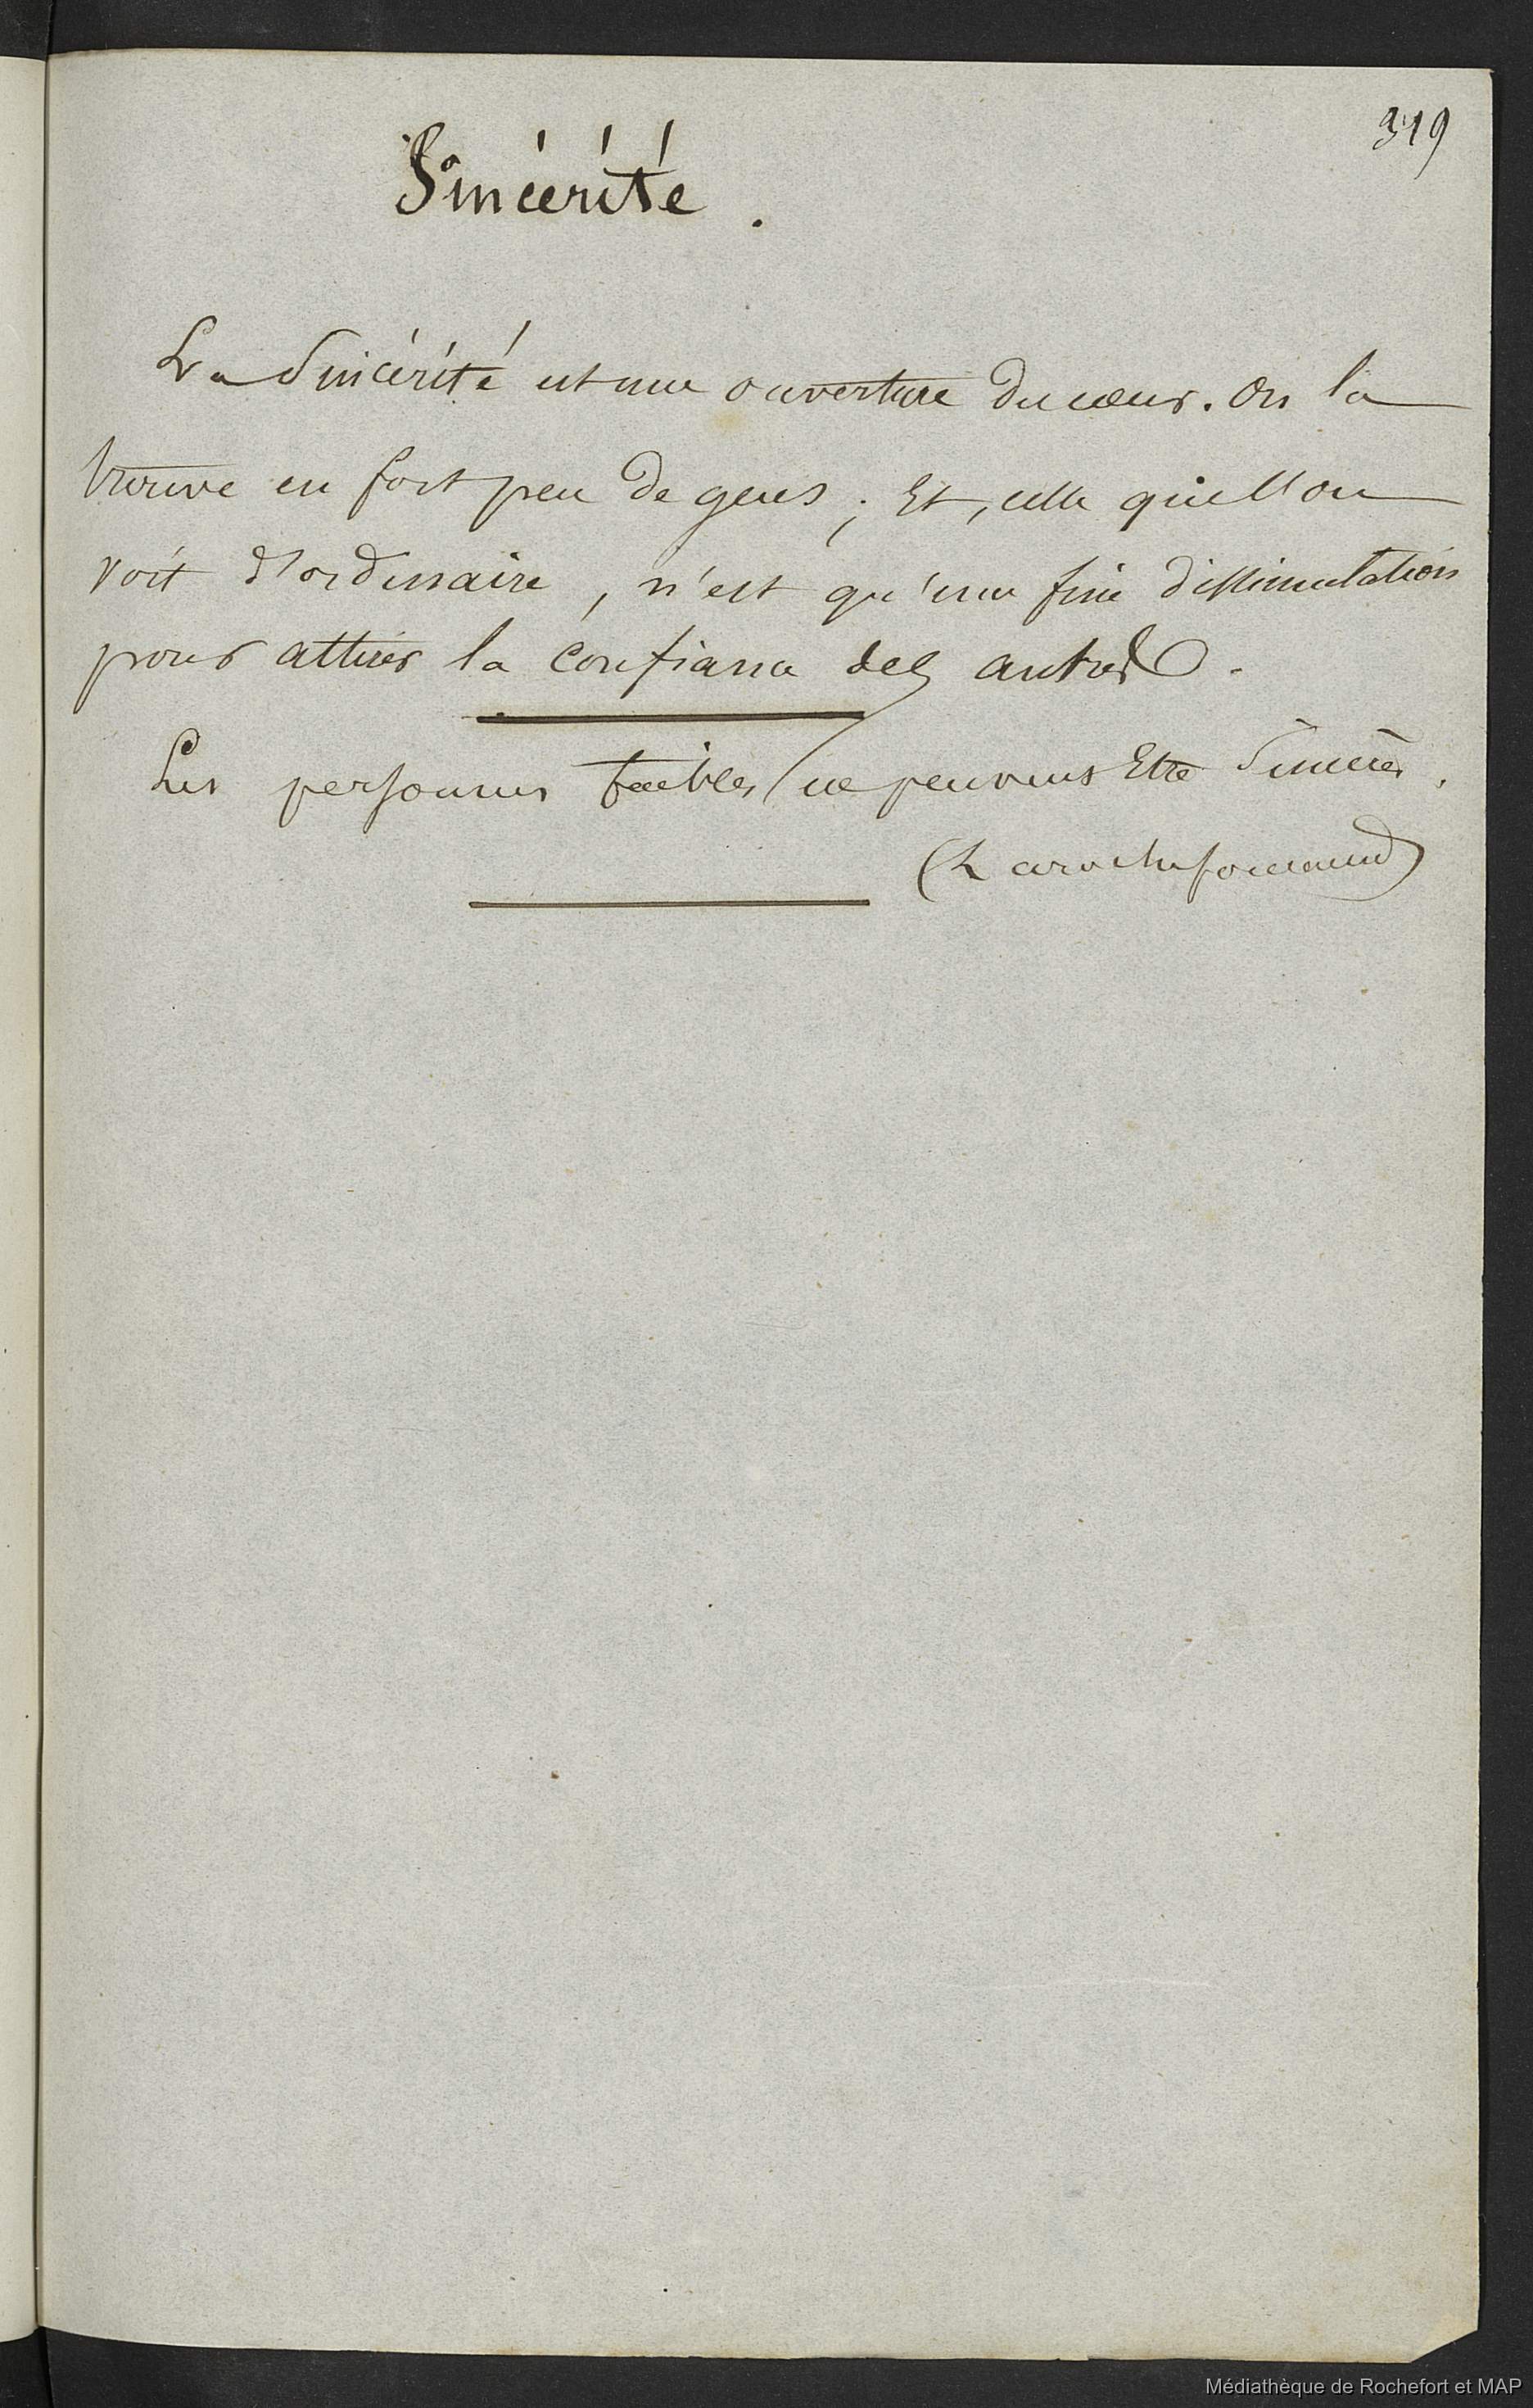 319
Sincérité.
La Sincérité est une ouverture du cœur. On la
trouve en fort peu de gens ; Et, celle que l'on
voit d'ordinaire, n'est qu'une fine dissimulation
pour attirer la confiance des autres.
Les personnes faibles ne peuvent Etre Sincères.
(Larochefoucauld)
Médiathèque de Rochefort et MAP